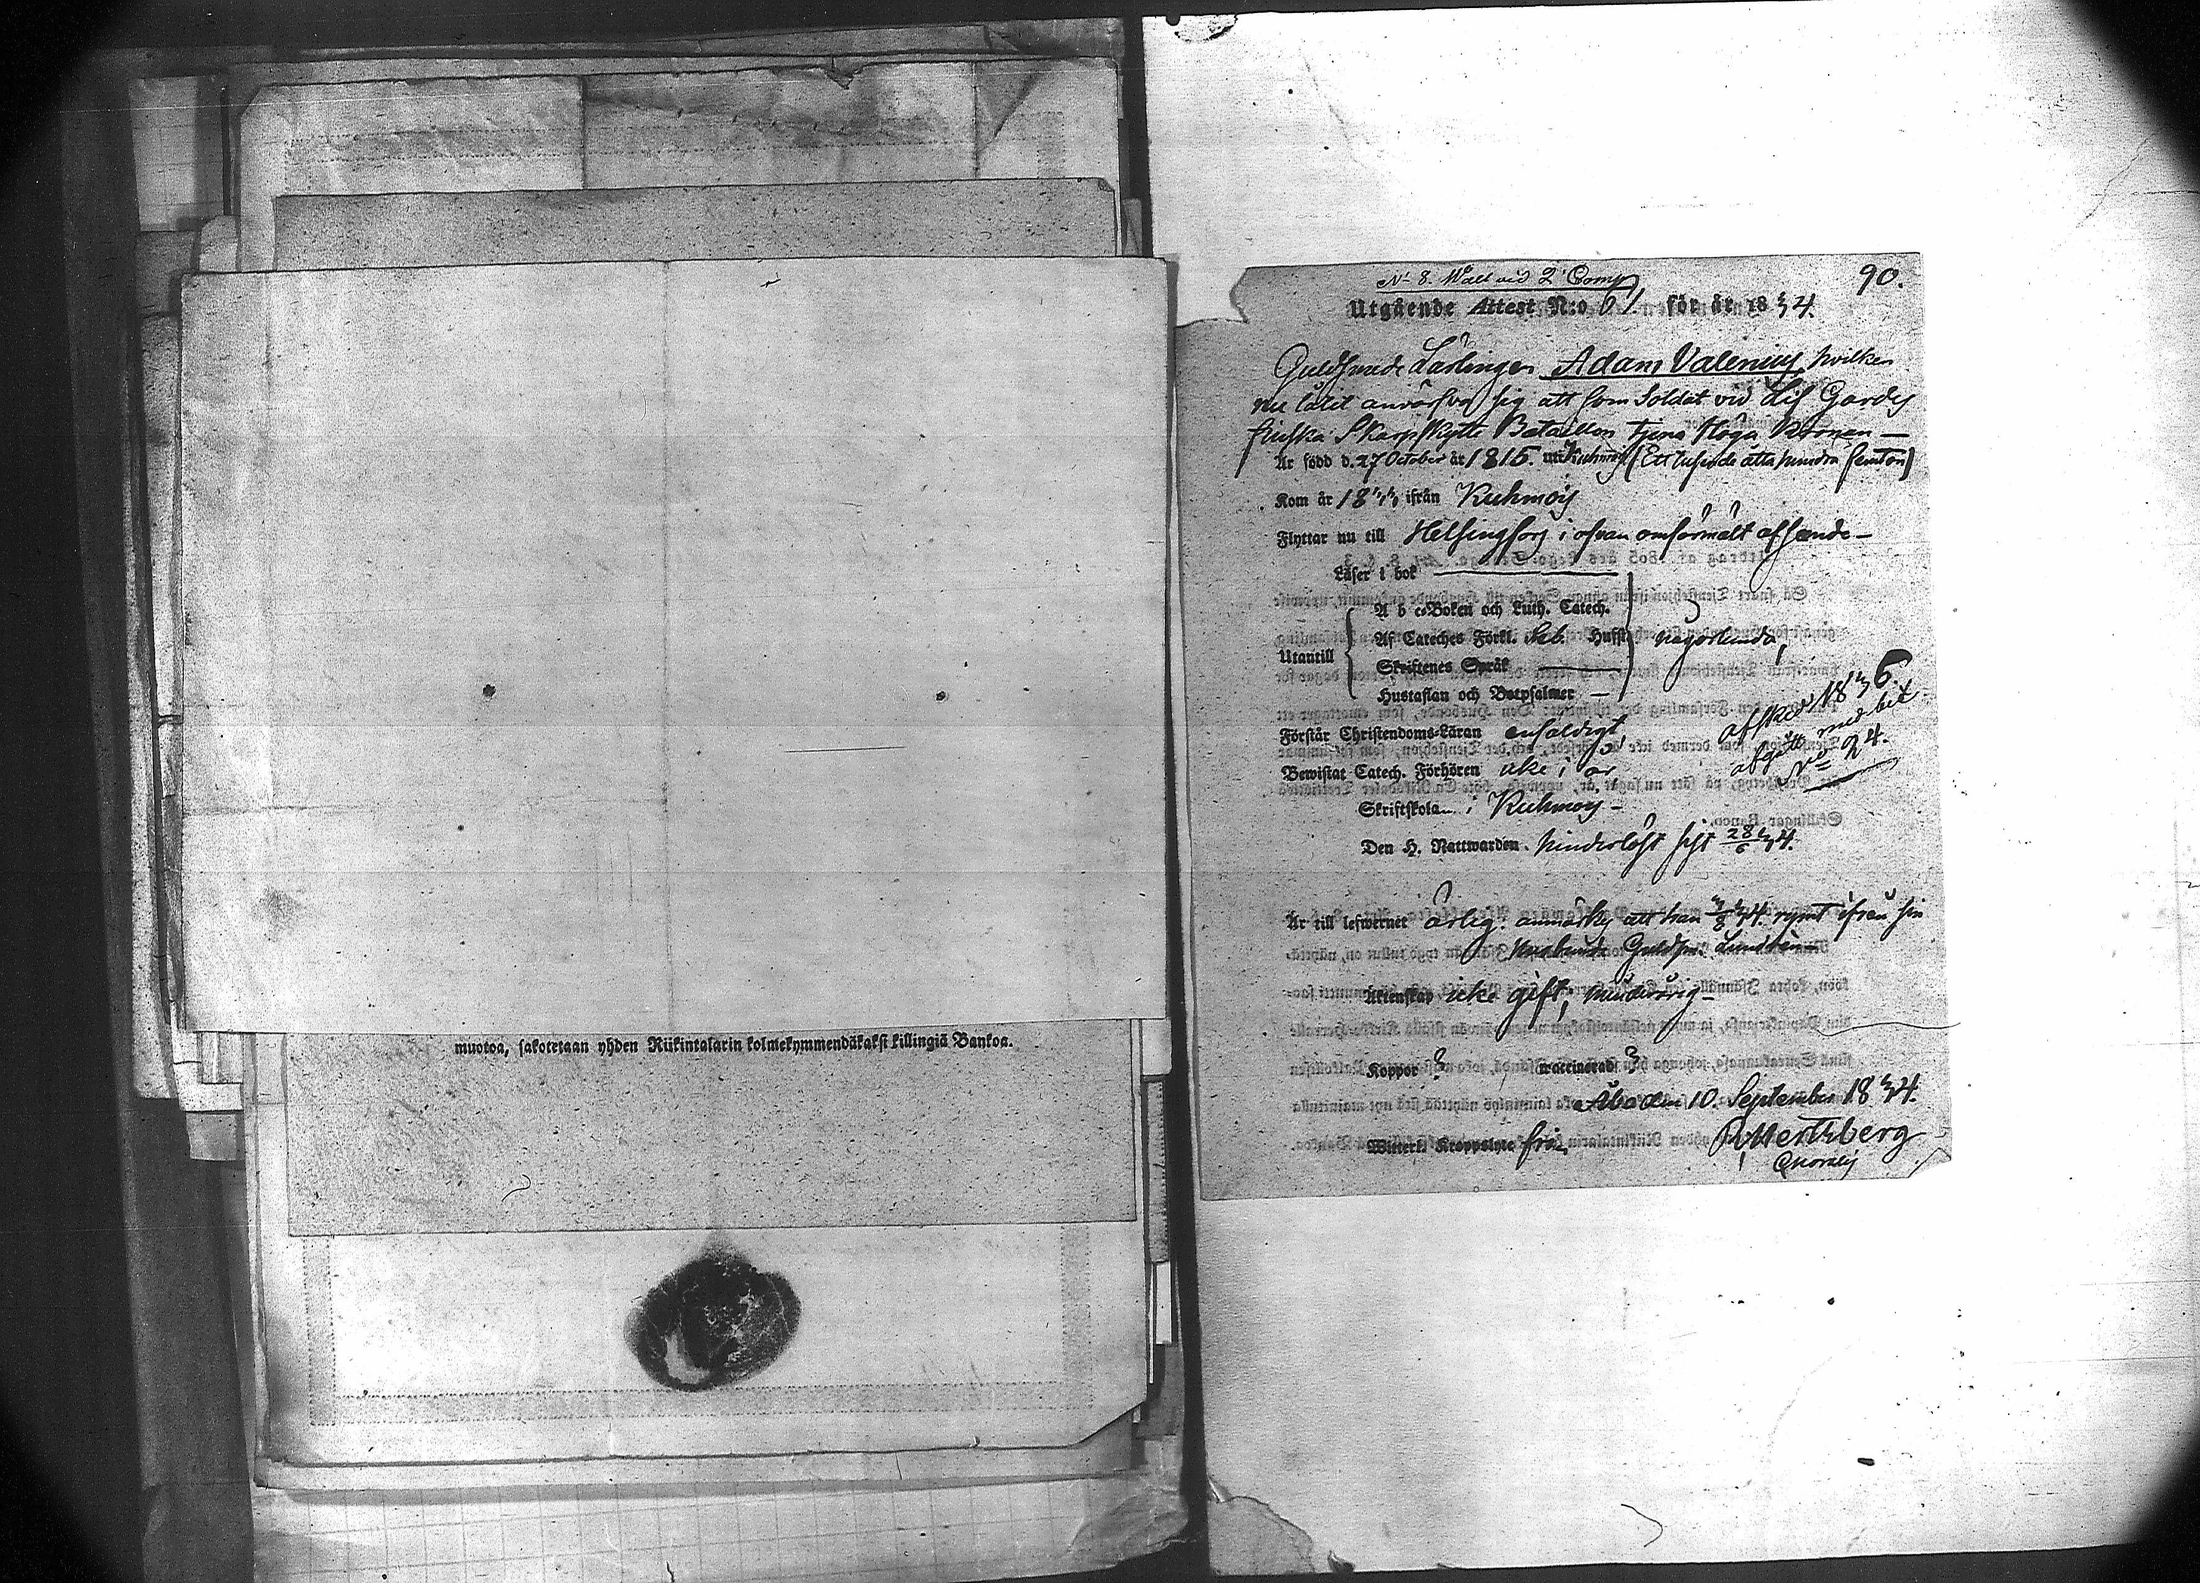 muotoa, sakotetaan yhden Riikintalarin kolmekymmendäkaksi killingiä Bankoa.
90.
N 8. Wall vid 2 Comp
Utgående Attest N:o för år 1834.
Guldsmeds Lärlingen Adam Valenius, hvilken
nu låtit anvärfva sig att som Soldat vid Lif Gardes
finska Skarpskytte Bataillon tjena Höga Kronan —
Är född d. 27 October år 1815. uti Kuhmois (Ett tusende åtta hundra femton)
Kom år 1833 ifrån Kuhmois
Flyttar nu till Helsingfors i ofvan omförmält afseende —
Läser i bok
A b c-Boken och Luth. Catech.
Af Cateches Förkl. Seb. Hufst
Utantill någorlunda,
Skriftenes Språk
Hustaflan och Botpsalmer —
Förstår Christendoms-Läran enfaldigt,
afsked 1836.
Bewistat Catech. Förhören icke i år
abgått med bet
No 24.
Skriftskolan i Kuhmois —
Den H. Nattwarden hinderlöst sist 28/6 34.
Är till lefwernet ärlig. anmärkes att han 34. rymt ifrån sin
Guldsm. Lundeen —
Äktenskap icke gift, minderårig —
Koppor ? waccinerad ?
Åbo den 10. September 1834.
Witterl. Kroppslyte fri.